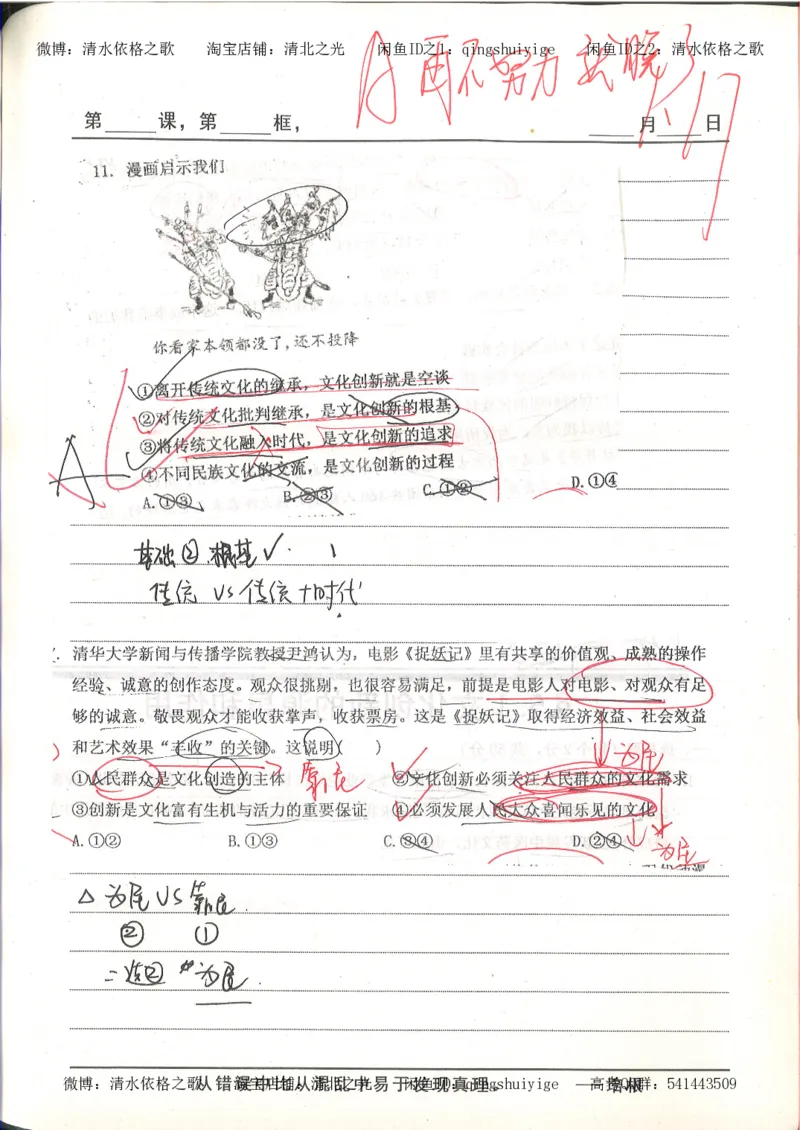 微博：清水依格之歌 淘宝店铺：清北之光 闲鱼ID之1：qingshuiyige 闲鱼ID之2：清水依格之歌
再不努力 就晚了
1.17
第 课，第 框， 月 日
11. 漫画启示我们
你看家本领都没了，还不投降
①离开传统文化的继承，文化创新就是空谈
②对传统文化批判继承，是文化创新的根基
③将传统文化融入时代，是文化创新的追求
④不同民族文化的交流，是文化创新的过程
A
A.①③ B.②③ C.①② D.①④
基础② 根基✓
传统 VS 传统+时代
清华大学新闻与传播学院教授尹鸿认为，电影《捉妖记》里有共享的价值观、成熟的操作
经验、诚意的创作态度。观众很挑剔，也很容易满足，前提是电影人对电影、对观众有足
够的诚意。敬畏观众才能收获掌声，收获票房。这是《捉妖记》取得经济效益、社会效益
和艺术效果“丰收”的关键。这说明( )
为民
①人民群众是文化创造的主体 靠民 ②文化创新必须关注人民群众的文化需求
③创新是文化富有生机与活力的重要保证 ④必须发展人民大众喜闻乐见的文化
A.①② B.①③ C.③④ D.②④
为民
△ 为民 VS 靠民
② ①
=选② “为民
微博：清水依格之歌 淘宝店铺：清北之光 闲鱼ID：qingshuiyige 高考QQ群：541443509
从错误中比从混乱中易于发现真理。 —培根